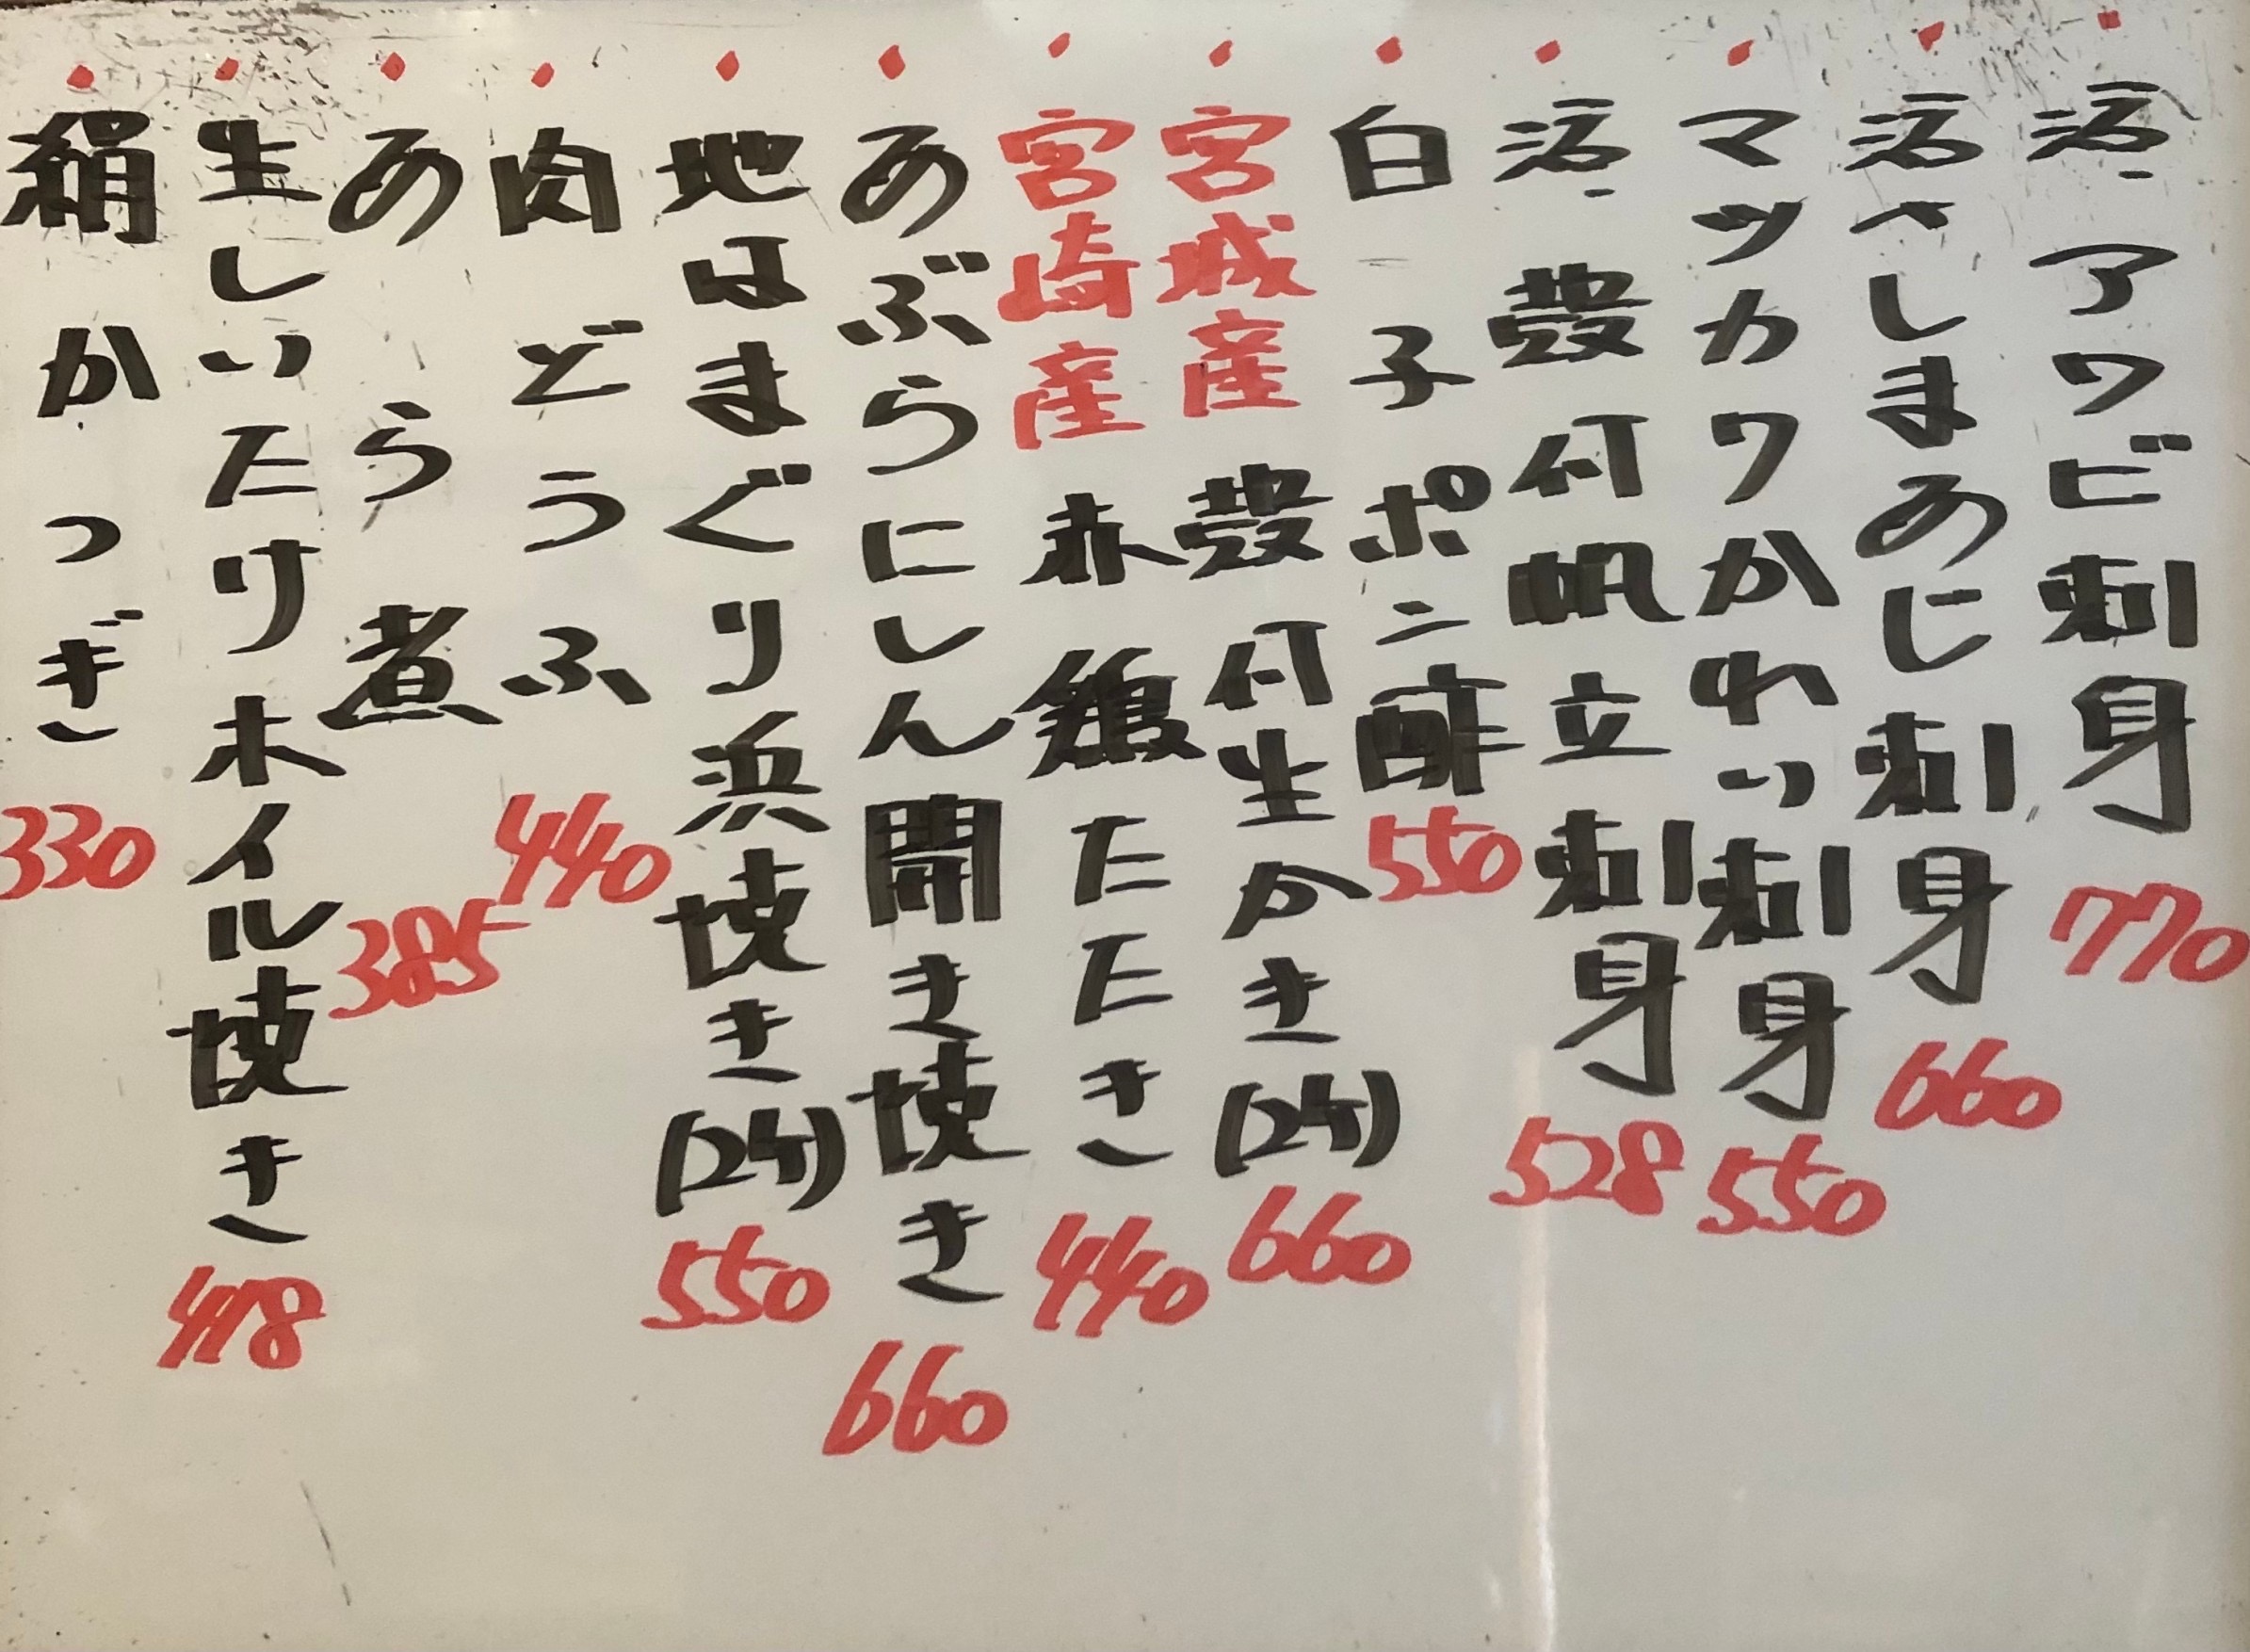 活、アワビ刺身 770
活〆しまあじ刺身 660
マツカワかれい刺身 550
活、殻付帆立刺身 528
白子ポン酢 550
宮城産 殻付生かき(2ケ) 660
宮崎産 赤鶏たたき 440
あぶらにしん開き焼き 660
地はまぐり浜焼き(2ケ) 550
肉どうふ 440
あら煮 385
生しいたけホイル焼き 418
絹かつぎ 330